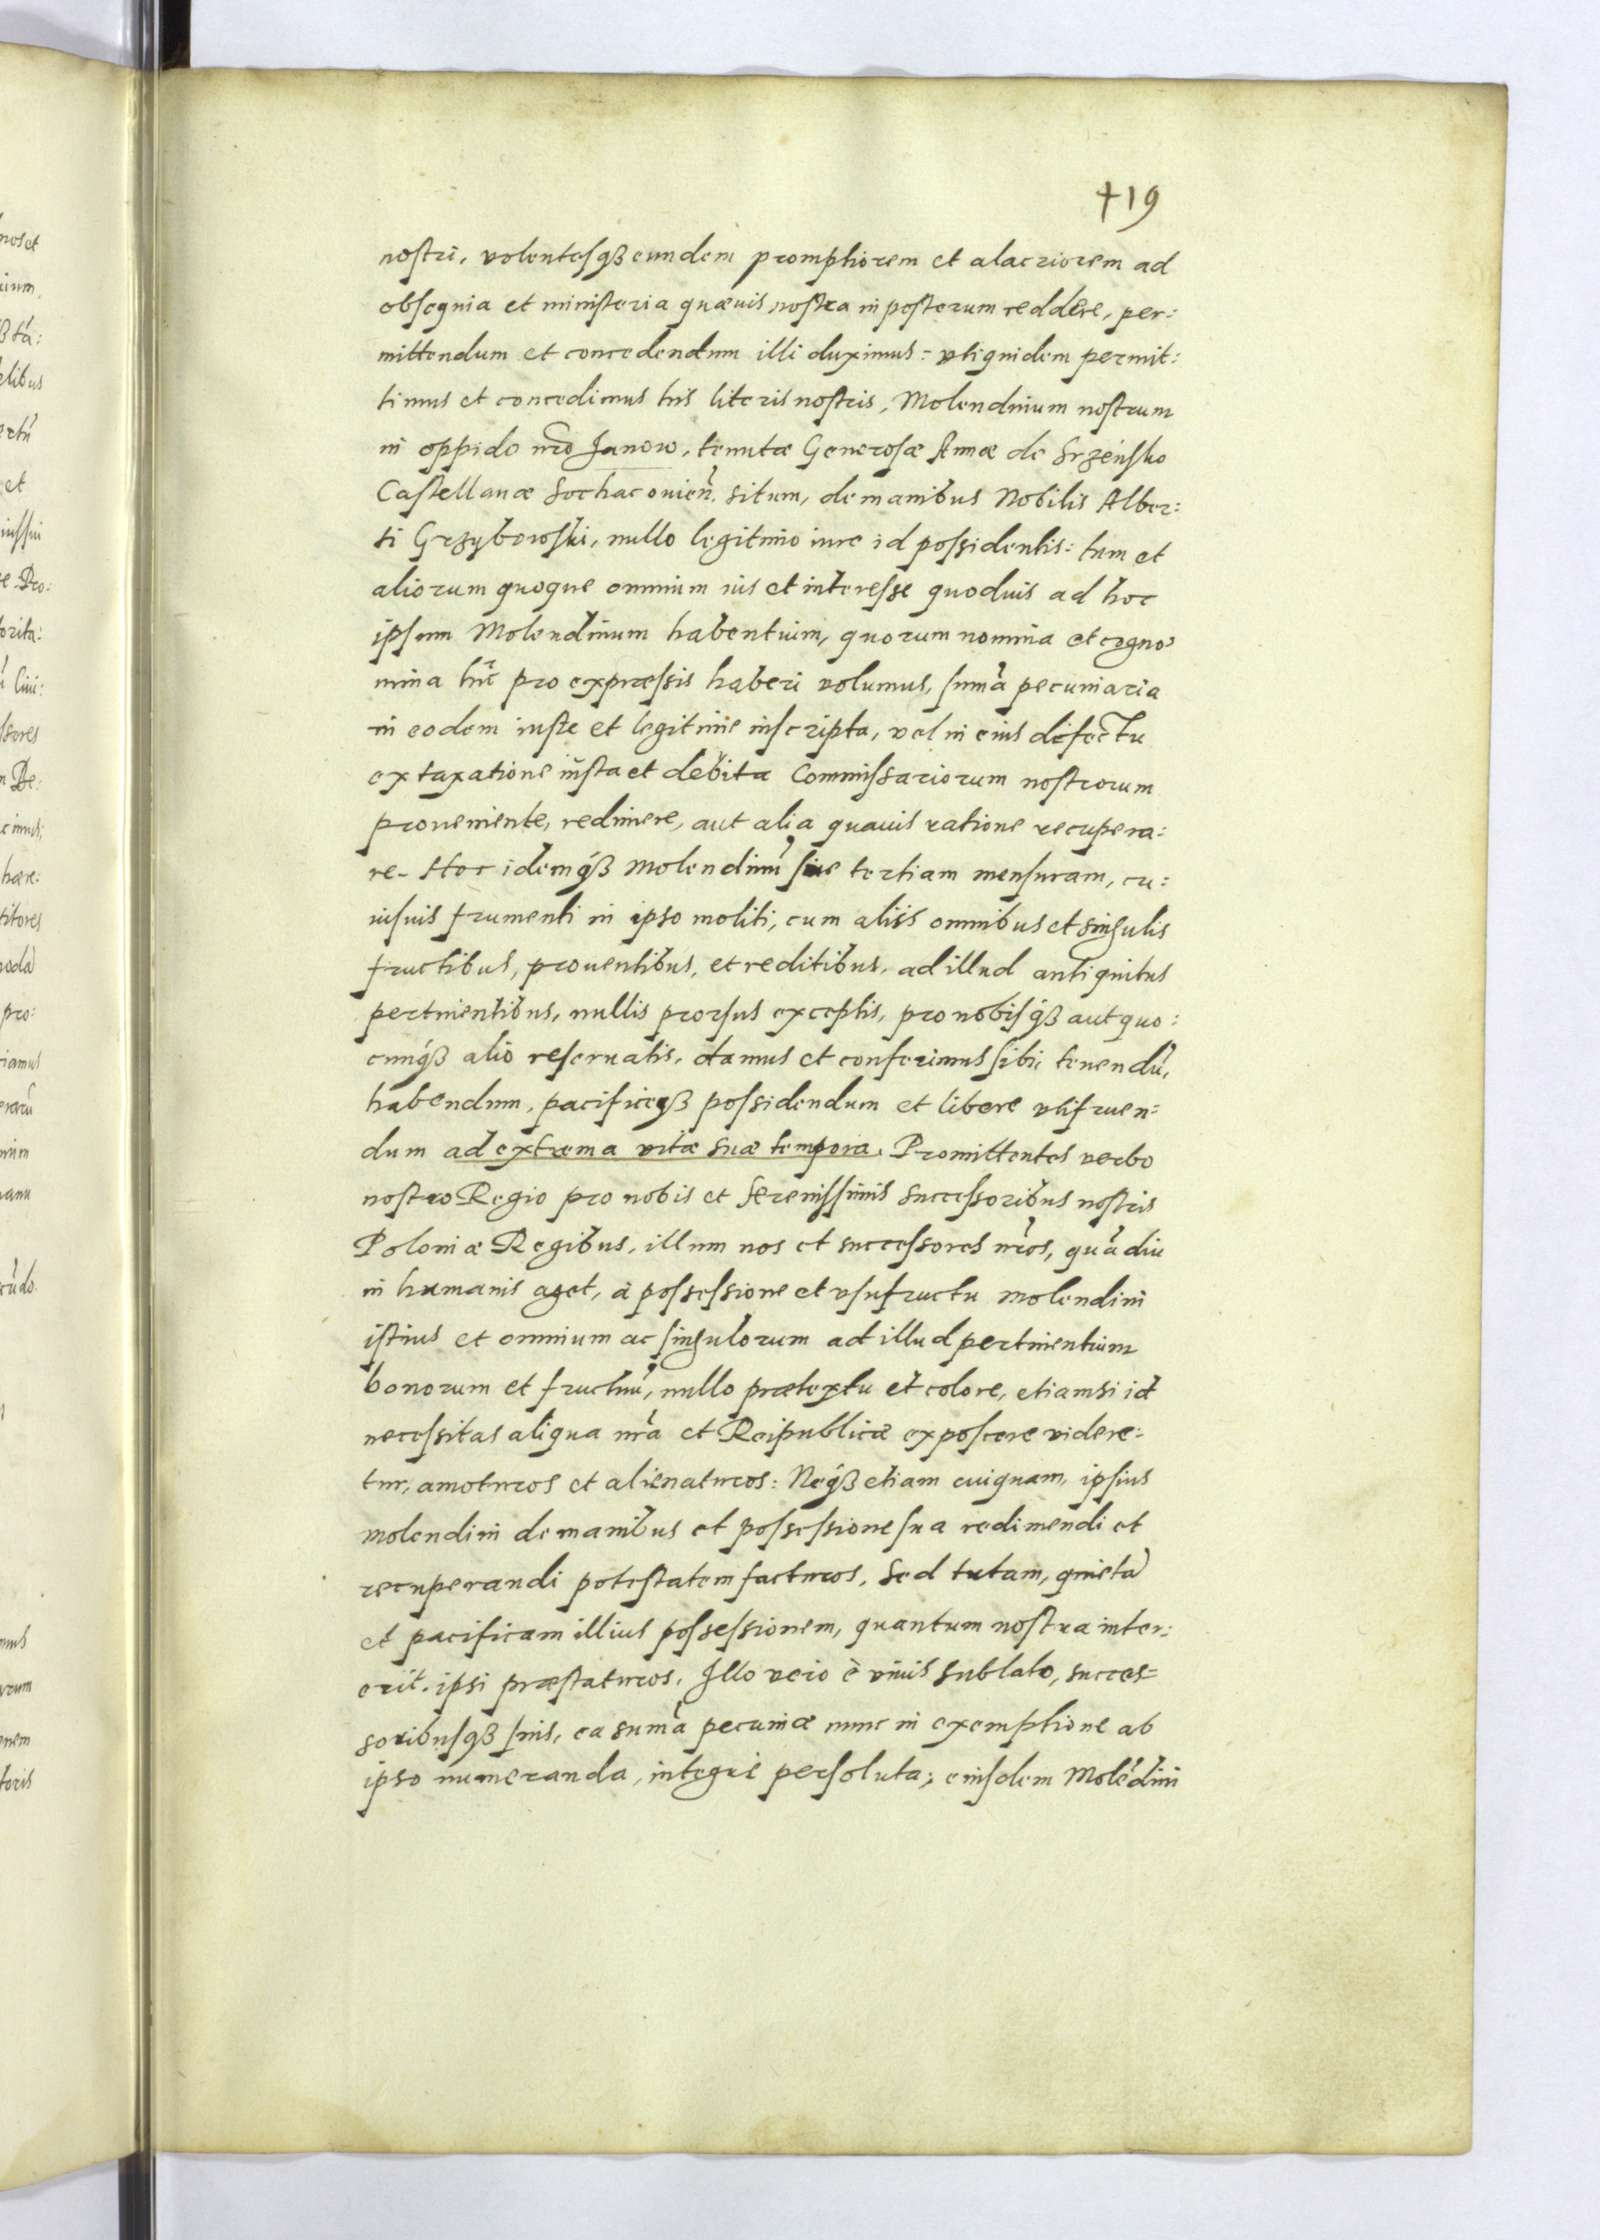 +19
nostri, volentesqß eundem promptiorem et alacriorem ad
obsequia et ministeria quæuis nostra in posterum reddere, per:
mittendum et concedendum illi duximus: vti quidem permit:
timus et concedimus his literis nostris, Molendinum nostrum
in oppido nr̃o Janow, tenutæ Generosæ Annæ de Srzensko
Castellanæ Sochaczouień. situm, de manibus Nobilis Alber:
ti Grzybowski, nullo legitimo iure id possidentis: tum et
aliorum quoque omnium ius et interesse quoduis ad hoc
ipsum Molendinum habentium, quorum nomina et cogno:
mina hic̃ pro expressis haberi volumus, sum̃a pecuniaria
in eodem iuste et legitime inscripta, vel in eius defectu
ex taxatione iusta et debita Commissariorum nostrorum
proueniente, redimere, aut alia quauis ratione recupera:
re. Hoc idemqß Molendinũ siue tertiam mensuram, cu:
iusuis frumenti in ipso moliti, cum alijs omnibus et singulis
fructibus, prouentibus, et reditibus, ad illud antiquitus
pertinentibus, nullis prorsus exceptis, pro nobisqß aut quo:
cunqß alio reseruatis, damus et conferimus sibi tenendũ,
habendum, pacificeqß possidendum et libere vtifruen:
dum ad extrema vitæ suæ tempora. Promittentes verbo
nostro Regio pro nobis et Serenissimis Successoribus nostris
Poloniæ Regibus, illum nos et successores nr̃os, quãdiu
in humanis aget, à possessione et vsufructu Molendini
istius et omnium ac singulorum ad illud pertinentium
bonorum et fructuũ, nullo prætextu et colore, etiamsi id
necessitas aliqua nr̃a et Reipublicæ exposcere videre:
tur, amoturos et alienaturos: Neqß etiam cuiquam, ipsius
Molendini de manibus et possessione sua redimendi et
recuperandi potestatem facturos, Sed tutam, quietã
et pacificam illius possessionem, quantum nostra inter:
erit, ipsi præstaturos. Illo vero è viuis sublato, succes=
soribusqß suis, ea sum̃a pecuniæ nunc in exemptione ab
ipso numeranda, integre persoluta; eiusdem Molẽdini